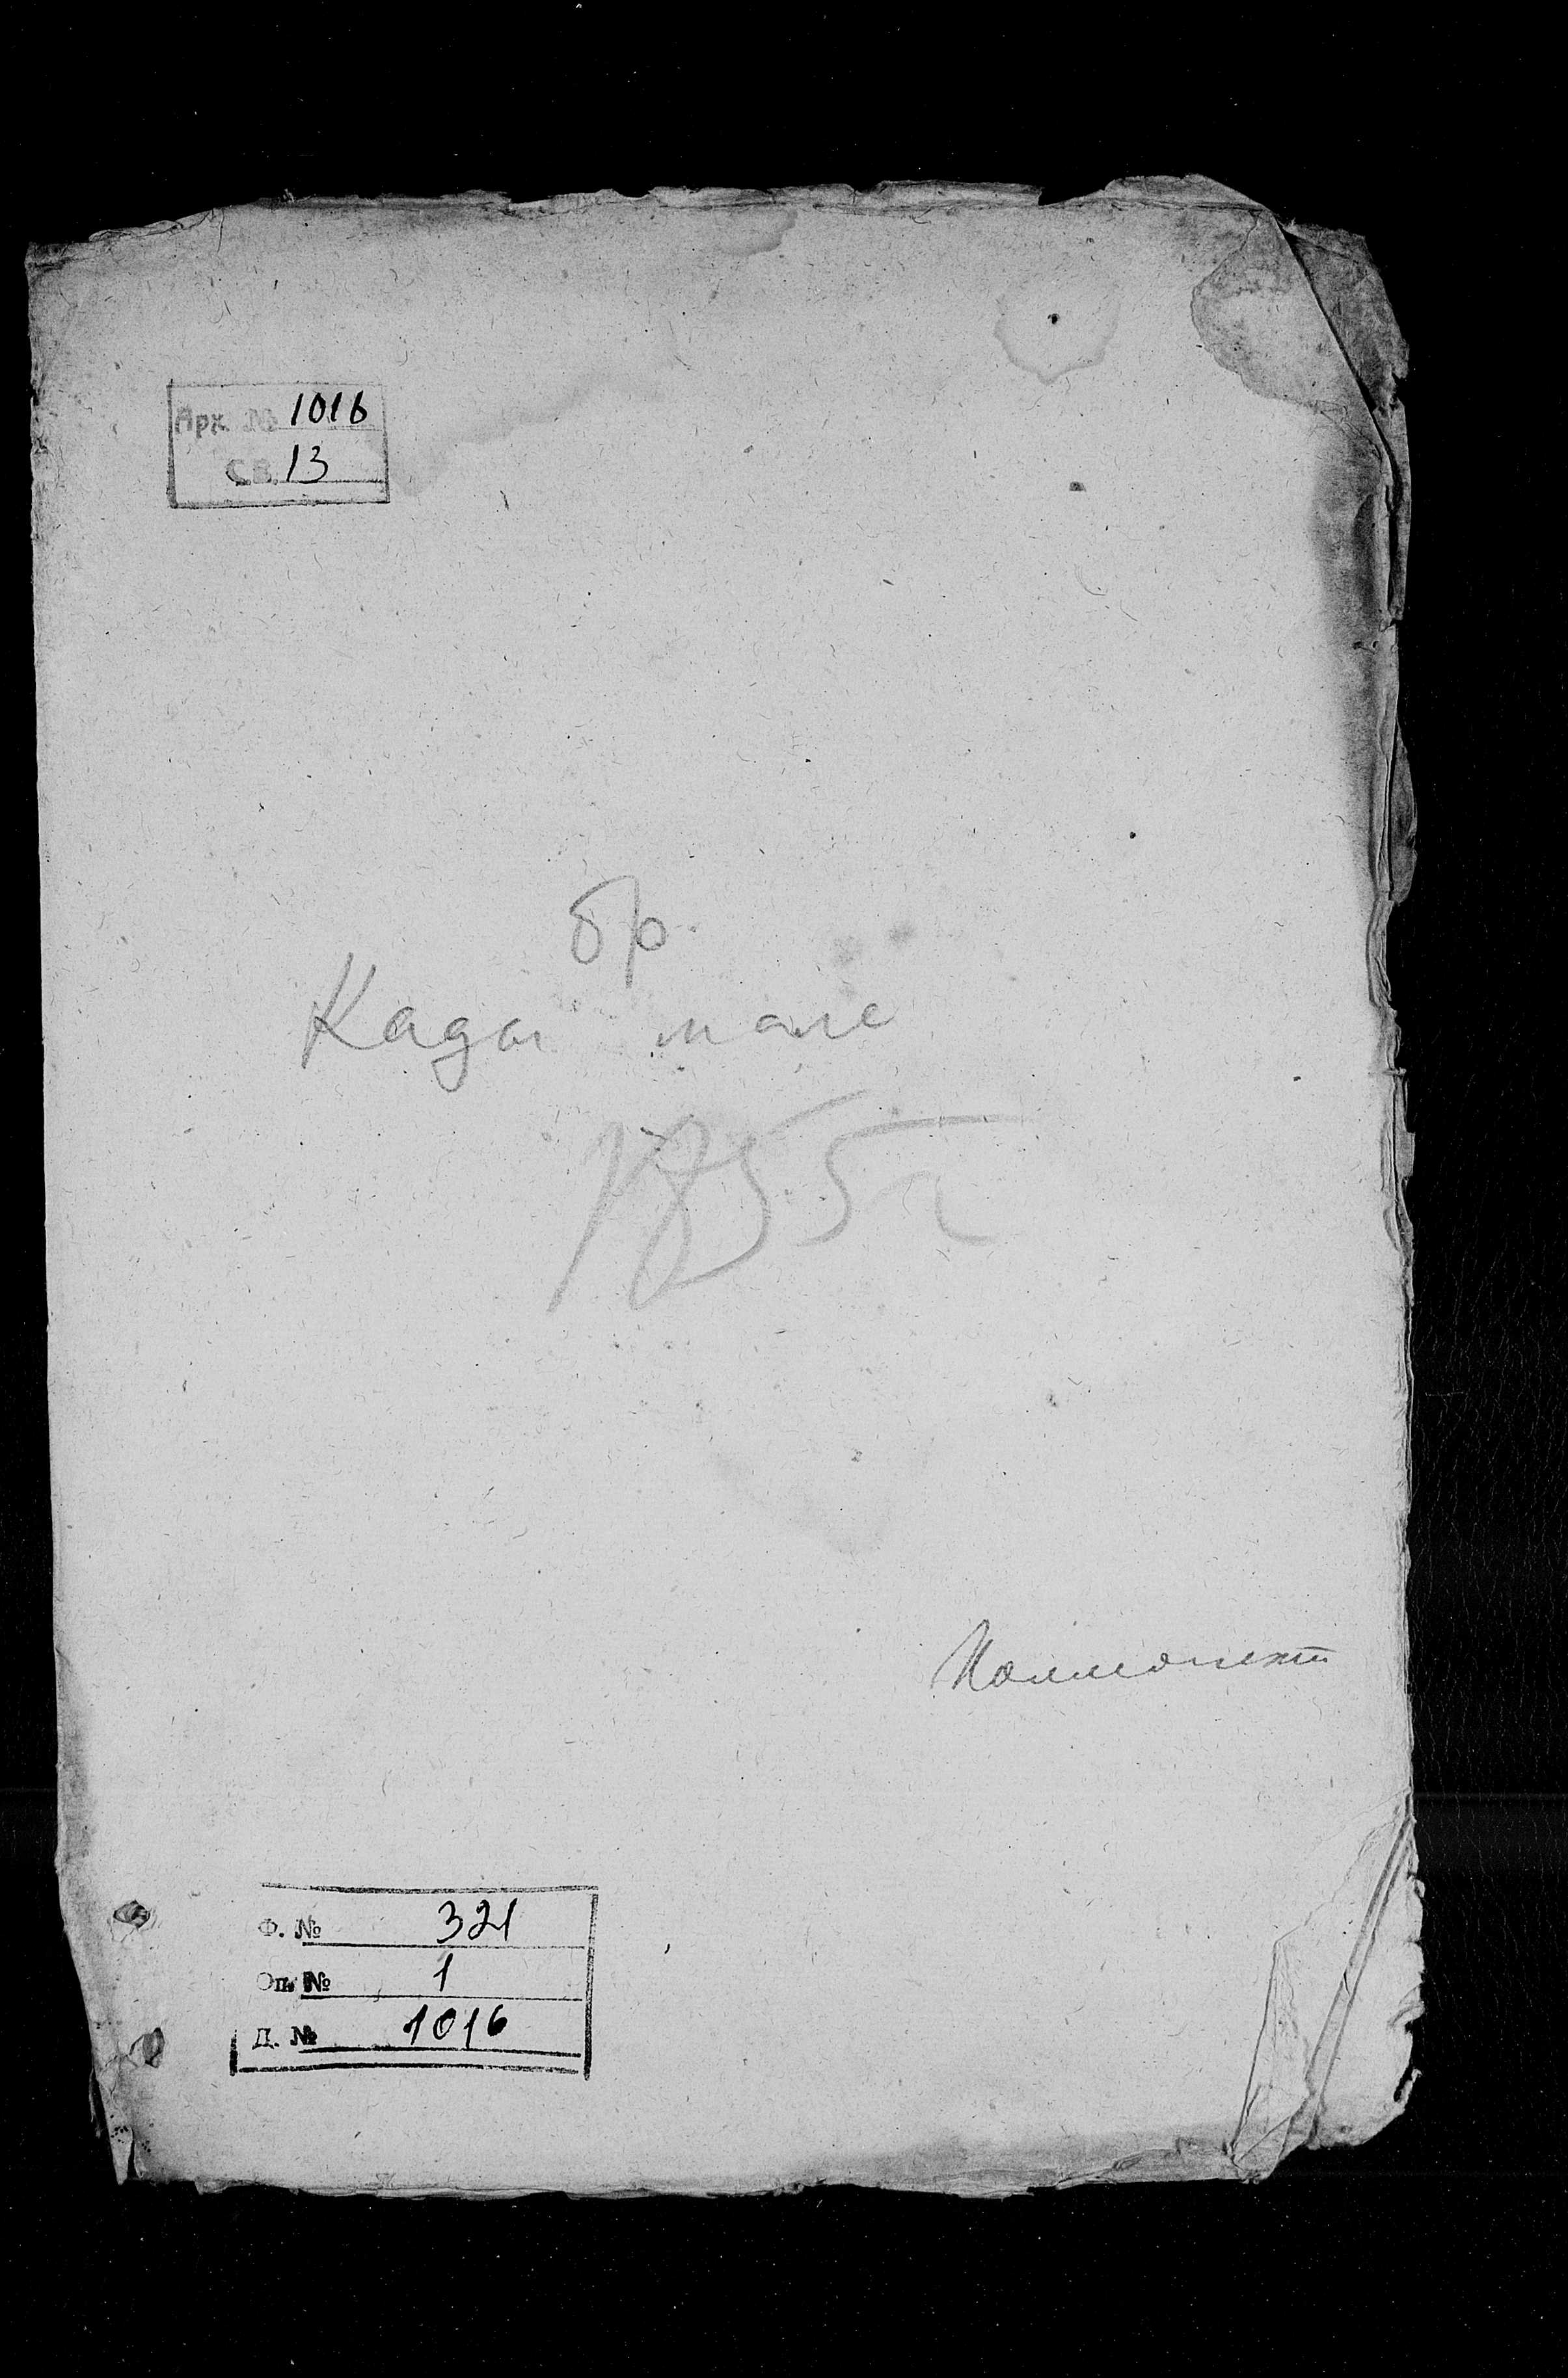 Арх. № 1016
Св. 13
бр.
Кады мале
1855 г
Ф. № 321
Оп. № 1
Д. № 1016